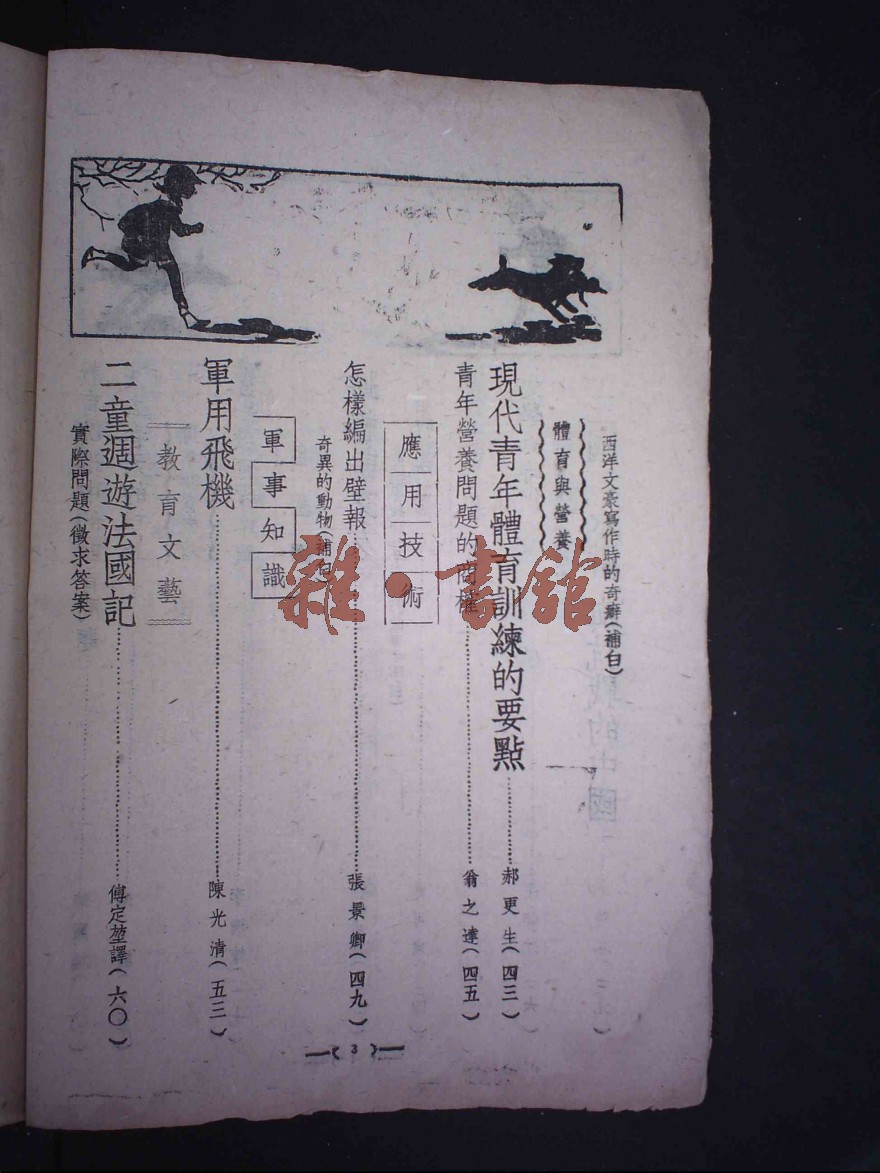 西洋文豪寫作時的奇癖(補白)
體育與營養
現代青年體育訓練的要點……郝更生(四三)
青年營養問題的商榷……翁之達(四五)
應用技術
怎樣編出壁報……張景卿(四九)
奇異的動物(補白)
軍事知識
軍用飛機……陳光清(五三)
教育文藝
二童週遊法國記……傅定堃譯(六〇)
實際問題(徵求答案)
3
雜·書館